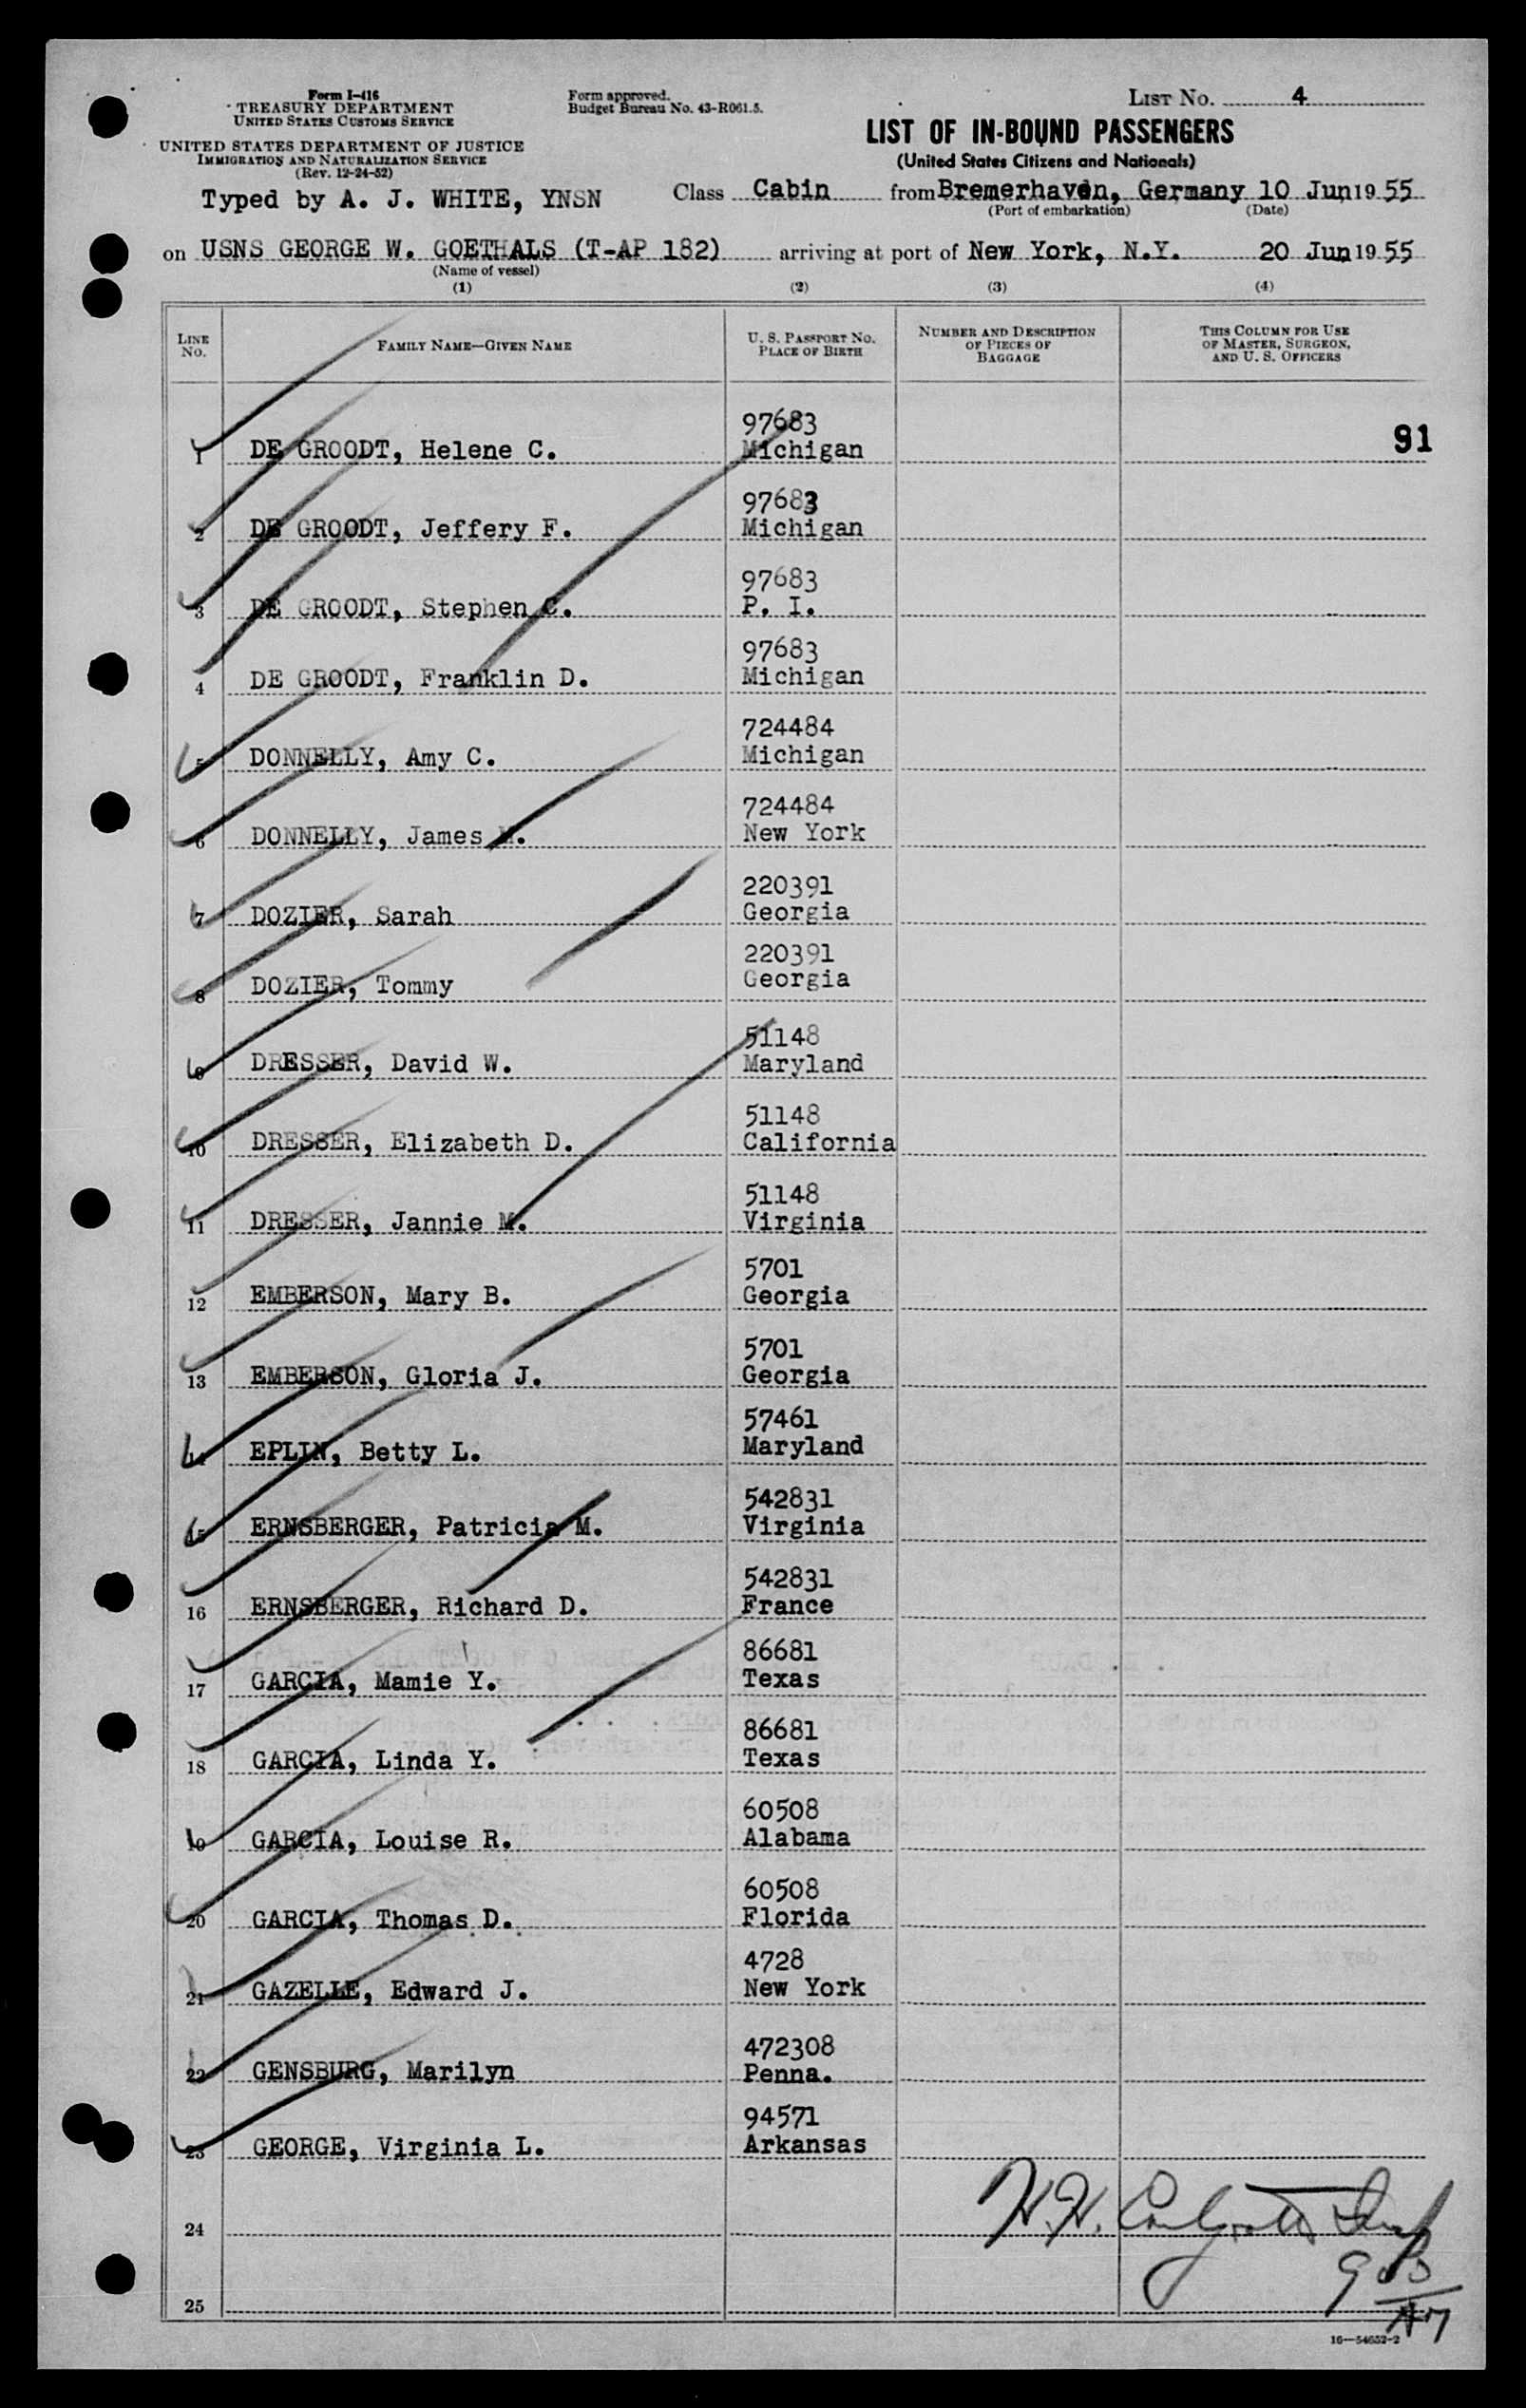 Form I-416
TREASURY DEPARTMENT
UNITED STATES CUSTOMS SERVICE
UNITED STATES DEPARTMENT OF JUSTICE
IMMIGRATION AND NATURALIZATION SERVICE
(Rev. 12-24-52)
Typed by A. J. WHITE, YNSN
Form approved.
Budget Bureau No. 43-R061.5.
LIST NO. 4
LIST OF IN-BOUND PASSENGERS
(United States Citizens and Nationals)
Class Cabin from Bremerhaven, Germany 10 Jun 1955
(Port of embarkation) (Date)
on USNS GEORGE W. GOETHALS (T-AP 182) arriving at port of New York, N.Y. 20 Jun 1955
(Name of vessel)
(1) (2) (3) (4)
LINE NO. FAMILY NAME—GIVEN NAME U. S. PASSPORT NO. PLACE OF BIRTH NUMBER AND DESCRIPTION OF PIECES OF BAGGAGE THIS COLUMN FOR USE OF MASTER, SURGEON, AND U. S. OFFICERS
97683
1 DE GROODT, Helene C. Michigan 91
97683
2 DE GROODT, Jeffery F. Michigan
97683
3 DE GROODT, Stephen C. P. I.
97683
4 DE GROODT, Franklin D. Michigan
724484
5 DONNELLY, Amy C. Michigan
724484
6 DONNELLY, James M. New York
220391
7 DOZIER, Sarah Georgia
220391
8 DOZIER, Tommy Georgia
51148
9 DRESSER, David W. Maryland
51148
10 DRESSER, Elizabeth D. California
51148
11 DRESSER, Jannie M. Virginia
5701
12 EMBERSON, Mary B. Georgia
5701
13 EMBERSON, Gloria J. Georgia
57461
14 EPLIN, Betty L. Maryland
542831
15 ERNSBERGER, Patricia M. Virginia
542831
16 ERNSBERGER, Richard D. France
86681
17 GARCIA, Mamie Y. Texas
86681
18 GARCIA, Linda Y. Texas
60508
19 GARCIA, Louise R. Alabama
60508
20 GARCIA, Thomas D. Florida
4728
21 GAZELLE, Edward J. New York
472308
22 GENSBURG, Marilyn Penna.
94571
23 GEORGE, Virginia L. Arkansas
24
25
16—54652-2